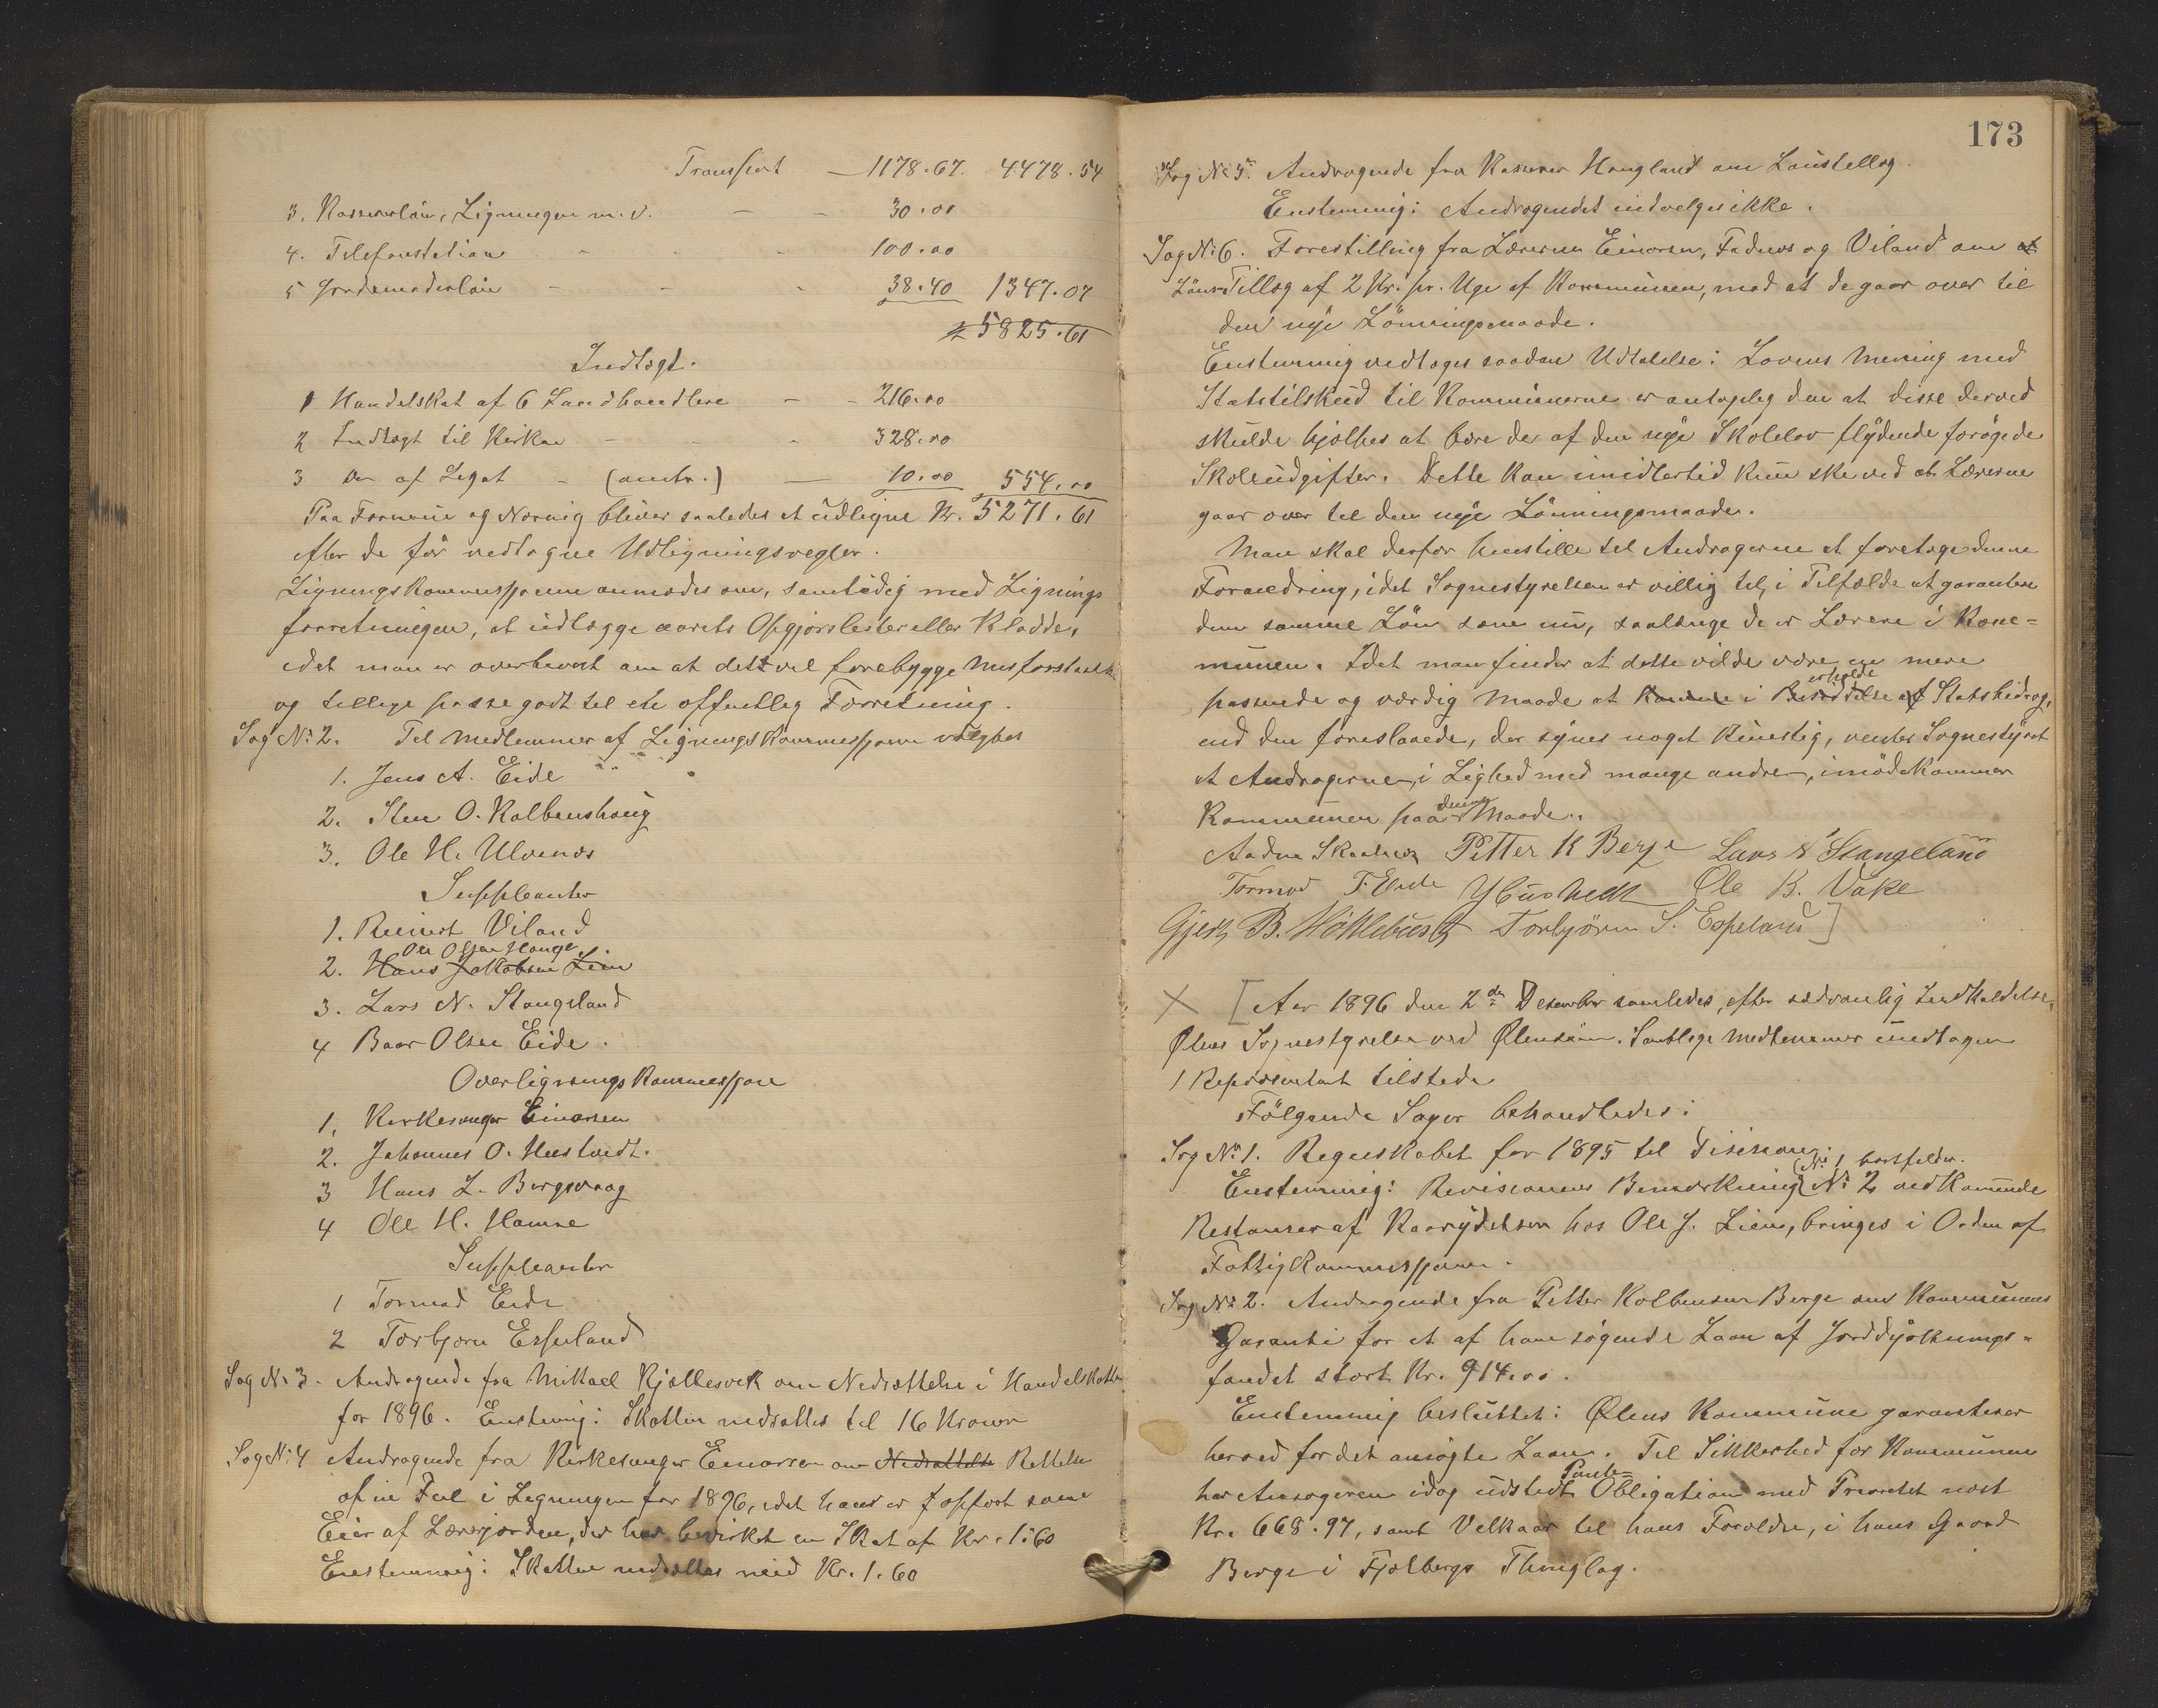 Transport — 1178.67. 4478.54
3. Kassererløn, Ligningen m.v. — - 30.00
4. Telefonstation - - - 100.00
5 Jordemoderløn - - - 38.40 1347.07
5825.61
Indtægt.
1 Handelskat af 6 Landhandlere - - 216.00
2 Indtægt til Kirken - - - 328.00
3 Do af Legat - (amtr.) — 10.00 554.00
Paa Formue og Næring bliver saaledes at udligne Kr. 5271.61
efter de før vedtagne Udligningsregler.
Ligningskommissjonen anmodes om, samtidig med Lignings
forretningen, at udlægge aarets Opgjørslister eller Kladde,
idet man er overbevist om at dette vil forebygge Misforstaaelse
og tillige passe godt til en offentlig Forretning.
Sag No 2. Til Medlemmer af Ligningskommissjonen valgtes
1. Jens A. Eide
2. Sten O. Kolbenshaug
3. Ole H. Ulvenæs
Suppleanter
1. Reinert Viland
Ole Olsen Hauge
2. Hans Jakobsen Lien
3. Lars N. Stangeland
4 Baar Olsen Eide.
Overligningskommissjon
1. Kirkesanger Einarsen
2. Johannes O. Hustvedt.
3 Hans L. Bergsvaag
4 Ole H. Hamre
Suppleanter
1 Tormod Eide
2 Torbjørn Espeland
Sag No 3. Andragende fra Mikkael Kjøllesvik om Nedsættelse i Handelskatten
for 1896. Enstemmig: Skatten nedsættes til 16 Kroner
Sag No 4 Andragende fra Kirkesanger Einarsen om Nedsættelse Rettelse
af en Feil i Ligningen for 1896, idet han er opført som
Eier af Lærerjorden, der har bevirket en Skat af Kr. 1.60
Enstemmig: Skatten nedsættes med Kr. 1.60
173
Sag No 5. Andragende fra Kasserer Haugland om Lønstillæg.
Enstemmig: Andragendet indvilges ikke.
Sag No 6. Forestilling fra Lærerne Einarsen, Fadnes og Viland om at
Løns-Tillæg af 2 Kr. pr. Uge af Kommunen, mod at de gaar over til
den nye Lønningsmaade.
Enstemmig vedtages saadan Udtalelse: Lovens Mening med
Statstilskud til Kommunerne er antagelig den at disse derved
skulde hjælpes at bære de af den nye Skolelov flydende forøgede
Skoleudgifter. Dette kan imidlertid kun ske ved at Lærerne
gaar over til den nye Lønningsmaade.
Man skal derfor henstille til Andragerne at foretage denne
Forandring, idet Sognestyrelsen er villig til, i Tilfælde at garantere
dem samme Løn som nu, saalænge de er Lærere i Kom=
munen. Idet man finder at dette vilde være en mere
erholde
passende og værdig Maade at komme i Besiddelse af Statsbidrag,
end den foreslaaede, der synes noget kunstig, venter Sognestyret
at Andragerne, i Lighed med mange andre, imødekommer
denne
Kommunen paa Maade.
Aadne Skaalnes Petter K Berge Lars N Stangeland
Tormod T. Eide Ole B. Vake
Gjert B. Torbjørn S. Espeland ]
X [ Aar 1896 den 2den Desember samledes, efter sædvanlig Indkaldelse,
Ølens Sognestyrelse ved Ølensøen. Samtlige Medlemmer undtagen
1 Repræsentant tilstede
Følgende Sager behandledes:
Sag No 1. Regnskabet for 1895 til Desision:
(No 1 bortfalder.
Enstemmig: Revisionens Bemærkning No 2 vedkommende
Restancer af Kaarydelsen hos Ole J. Lien, bringes i Orden af
Fattigkommissjonen.
Sag No 2. Andragende fra Petter Kolbensen Berge om Kommunens
Garanti for et af ham søgende Laan af Jorddyrknings=
fondet stort Kr. 914.00.
Enstemmig besluttet: Ølens Kommune garanterer
herved for det ansøgte Laan. Til Sikkerhed for Kommunen
Pante=
har Ansøgeren idag udstedt Obligation med Prioritet næst
Kr. 668.97, samt Velkaar til hans Forældre, i hans Gaard
Berge i Fjelbergs Thinglag.